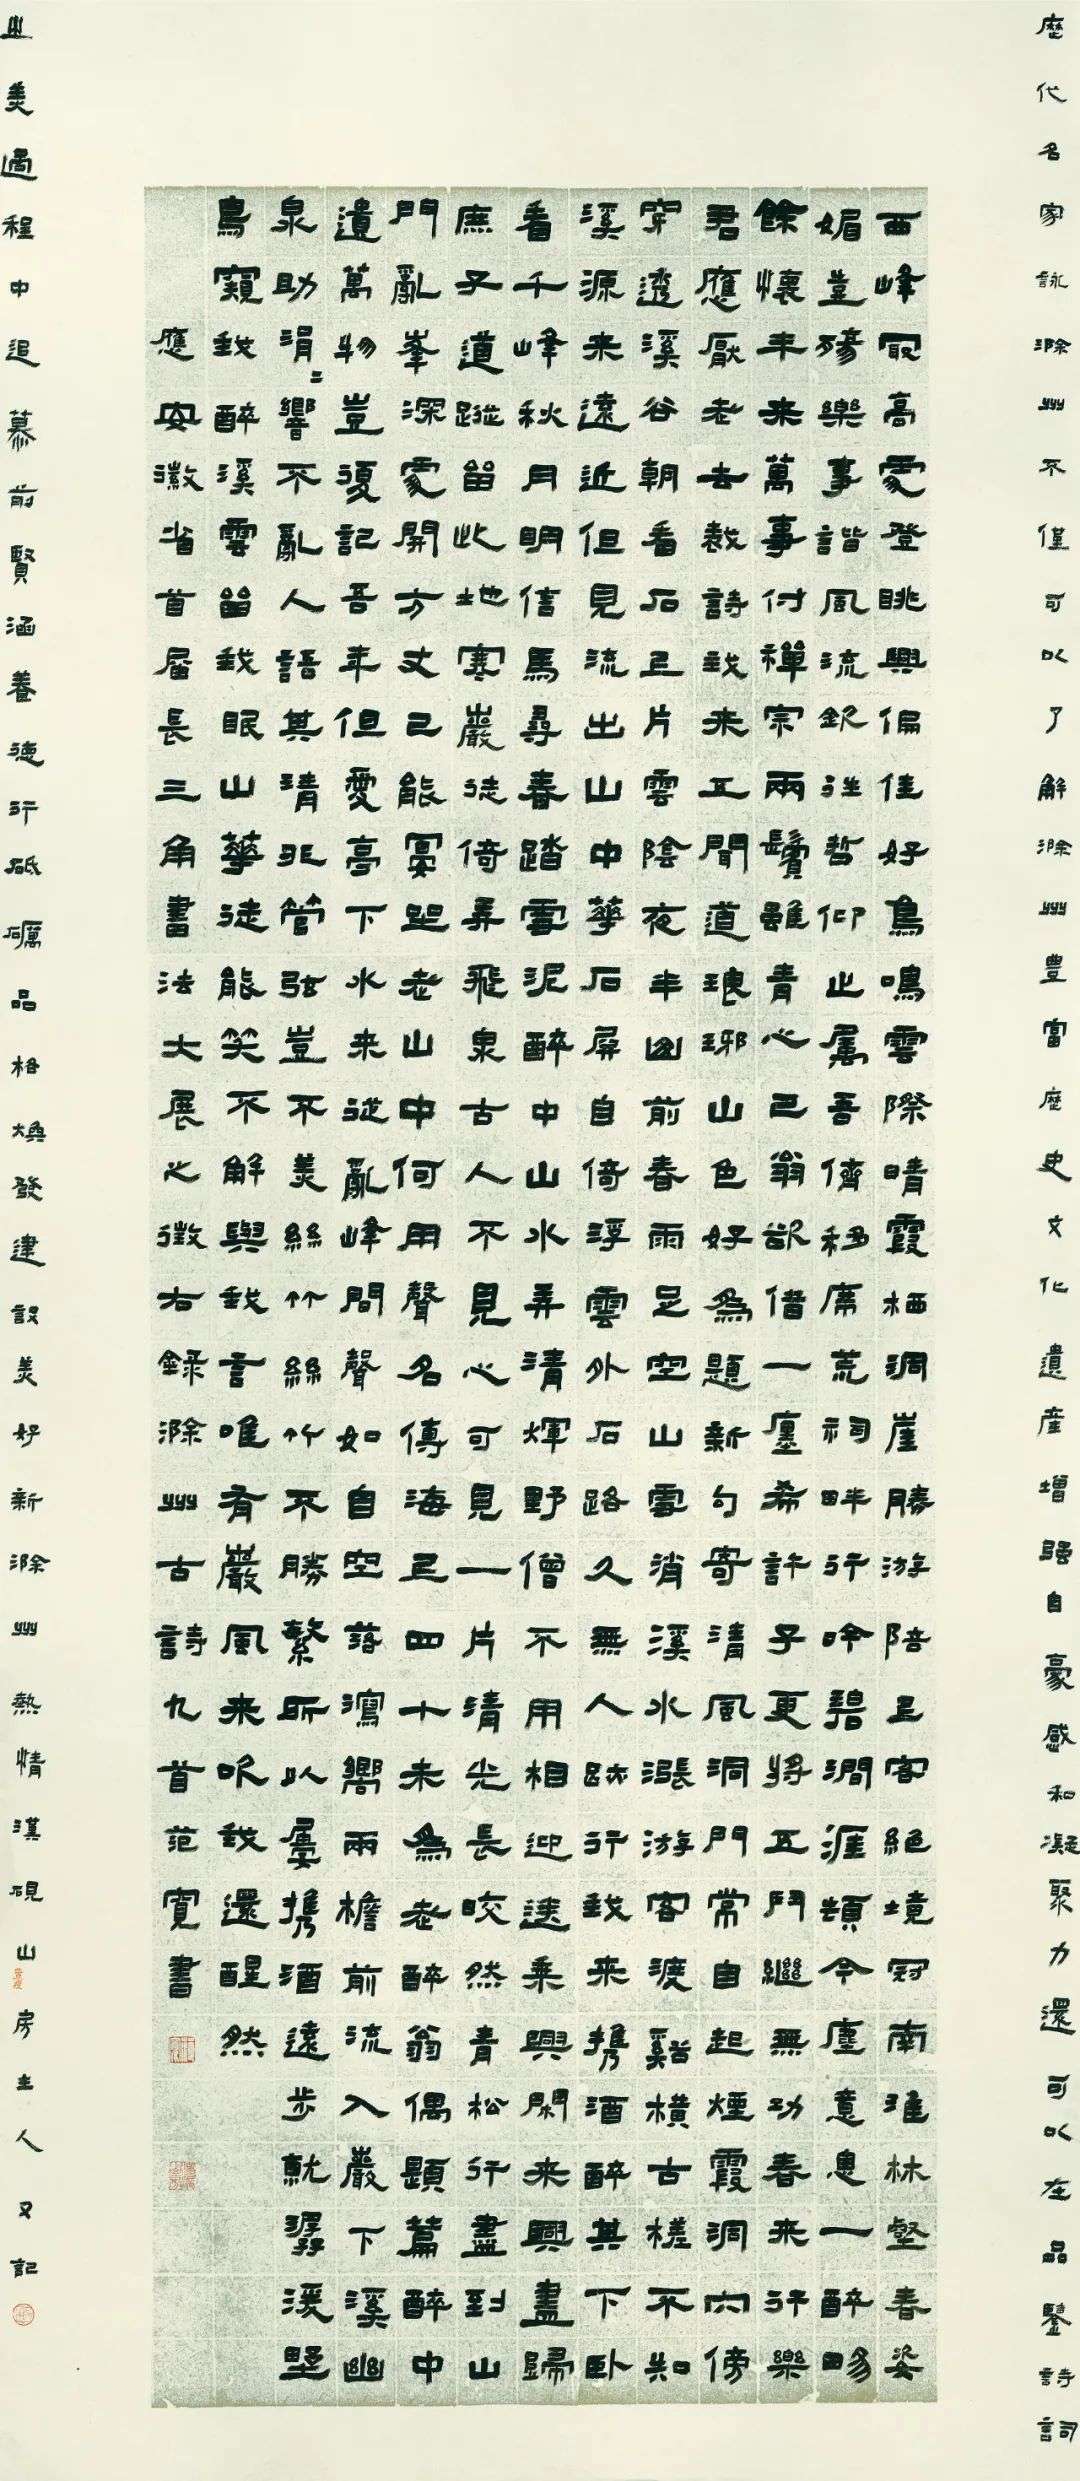 西峰冣高處登眺興偏佳好鳥鳴雲際晴霞栖洞崖勝游陪上客絕境冠南淮林壑春姿
媚豈殢樂事諧風流欽往哲仰止屬吾儕移席荒祠畔行吟碧澗涯頓令塵意息一醉畅
餘懷年来萬事付禪宗兩鬢雖青心已翁欲借一廛希許子更將五斗繼無功春来行樂
君應厭老去裁詩我来工聞道琅琊山色好為題新句寄清風洞門常自起煙霞洞穴傍
穿透溪谷朝看石上片雲陰夜半山前春雨足空山雲消溪水漲游客渡谿橫古槎不知
溪源来遠近但見流出山中華石屏自倚浮雲外石路久無人跡行我来携酒醉其下臥
看千峰秋月明信馬尋春踏雪泥醉中山水弄清輝野僧不用相迎送乘興閑来興盡歸
庶子道蹤留此地寒巖徒倚弄飛泉古人不見心可見一片清光長皎然青松行盡到山
門亂峯深處開方丈已能宴坐老山中何用聲名傳海上四十未為老醉翁偶題篇醉中
遺萬物豈復記吾年但愛亭下水来從亂峰間聲如自空落瀉嚮兩檐前流入巖下溪幽
泉助涓〻響不亂人語其清非管弦豈不美絲竹絲竹不勝繁所以屢携酒遠步就潺湲野
鳥窺我醉溪雲留我眠山華徒能笑不解與我言唯有巖風来吹我還醒然
應安徽省首屆長三角書法大展之徵右錄滁州古詩九首范寬書
歷代名家詠滁州不僅可以了解滁州豐富歷史文化遺産增强自豪感和凝聚力還可以在品鑒詩詞
之美過程中追慕前賢涵養德行砥礪品格煥發建設美好新滁州熱情漢硯山房主人又記